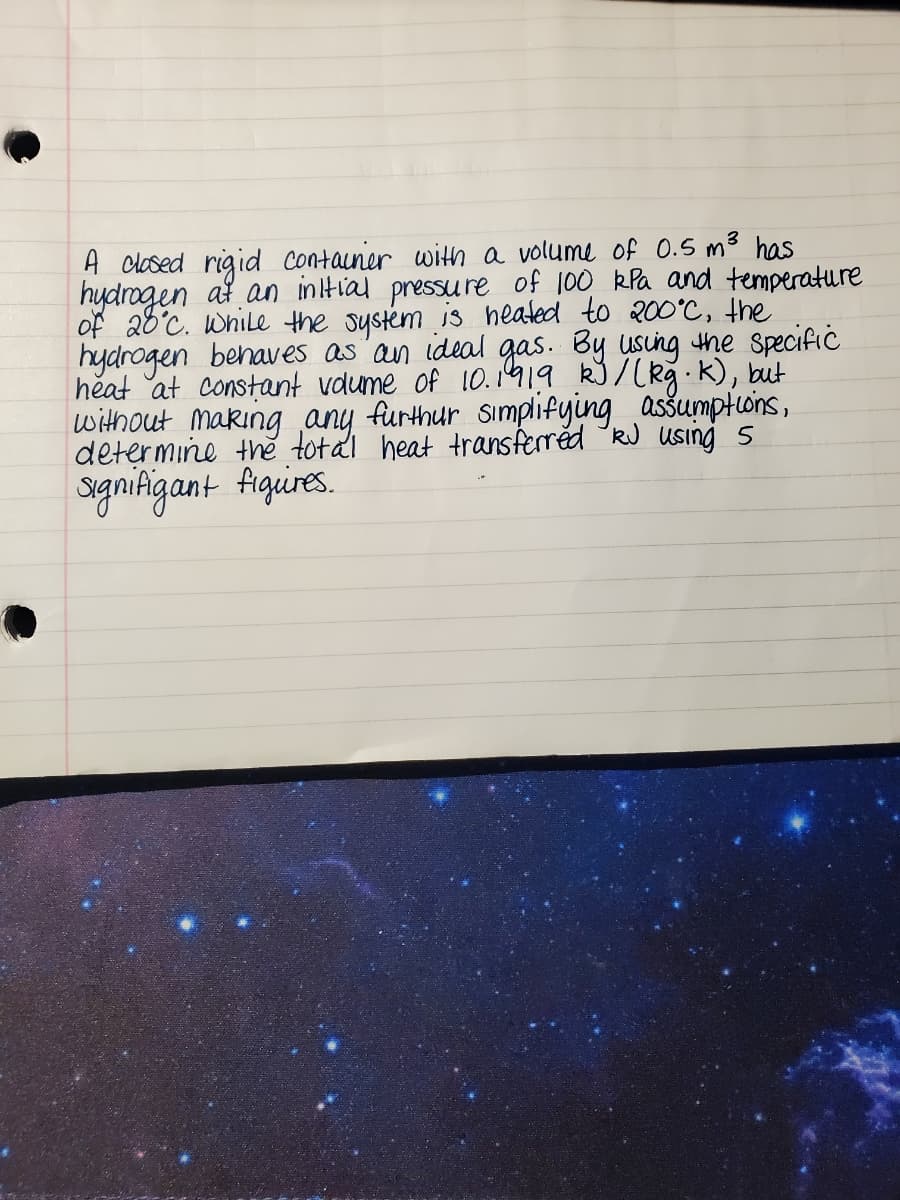 A closed rigid container with a volume of 0.5 m³ has
hydrogen at an initial pressure of 100 kPa and temperature
of 20°C. While the system is heated to 200°C, the
hydrogen behaves as an ideal gas. By using the specific
heat at constant volume of 10.1919 kJ/(kg·K), but
without making any furthur simplifying assumptions,
determine the total heat transferred kJ using 5
signifigant figures.